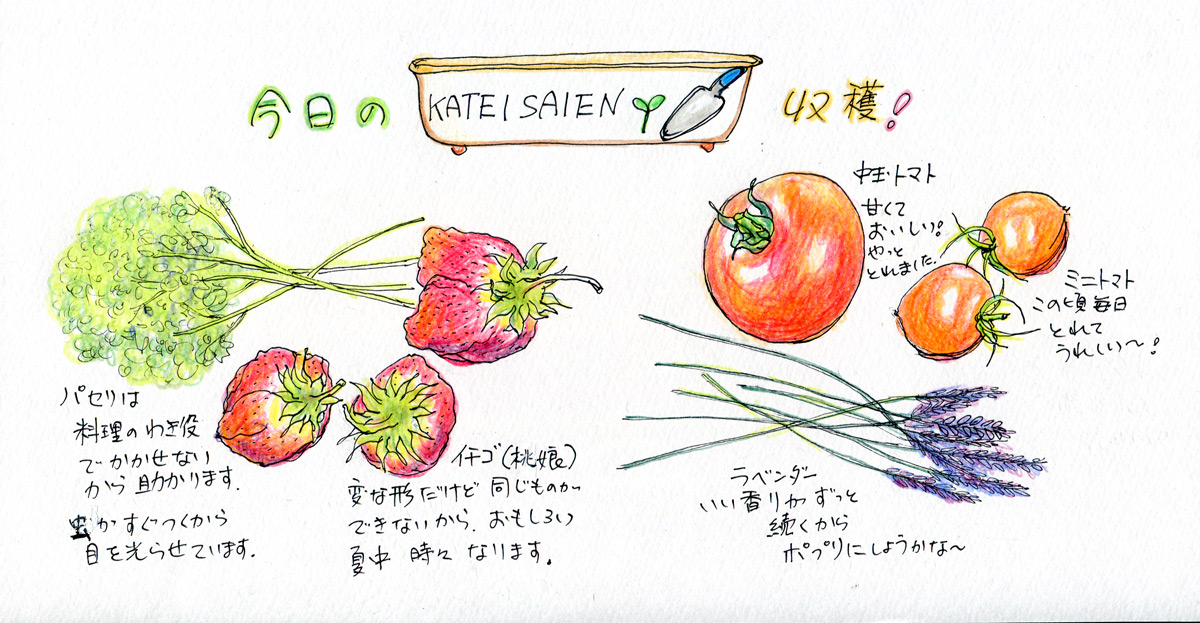 今日の KATEI SAIEN 収穫!
パセリは
料理のわき役
でかかせない
から助かります.
虫がすぐつくから
目を光らせています.
イチゴ(桃娘)
変な形だけど 同じものが
できないから. おもしろい
夏中 時々 なります.
中玉・トマト
甘くて
おいしい!
やっと
とれました.
ミニトマト
この頃毎日
とれて
うれしい〜!
ラベンダー
いい香りがずっと
続くから
ポプリにしようかな〜